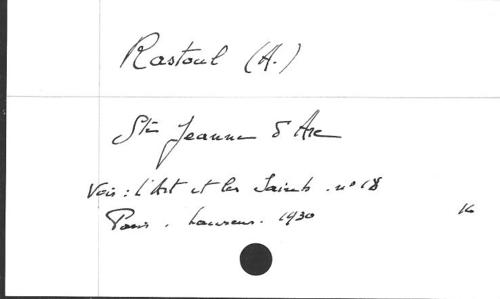 Rastoul (A.)
Ste Jeanne d'Arc
Voir : L'Art et les Saints. n° 18
Paris. Laurens. 1930